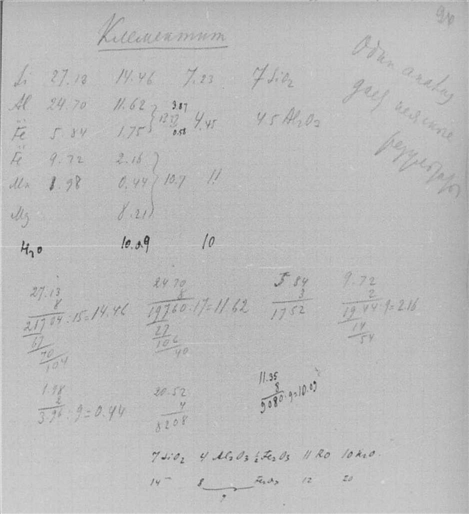 90
Клементит
Один анализ
дает неясные
результаты
Si 27.13 14.46 7.23 7SiO2
Al 24.70 11.62 3.87 4.5 Al2O3
Fe 5.84 1.75 0.58 4.45
Fe 9.72 2.16
Mn 1.98 0.44 10.7 11
Mg 8.21
H2O 10.09 10
27.13 24.70 5.84 9.72
8 8 3 2
217 04:15=14.46 19760:17=11.62 1752 19 44:9=216
67 27 14
70 106 54
104 40
1.98 20.52 11.35
2 4 8
3.96:9=0.44 8208 9080:9=10.09
7SiO2 4 Al2O3 ½Fe2O3 11 RO 10H2O
14 8 Fe2O3 12 20